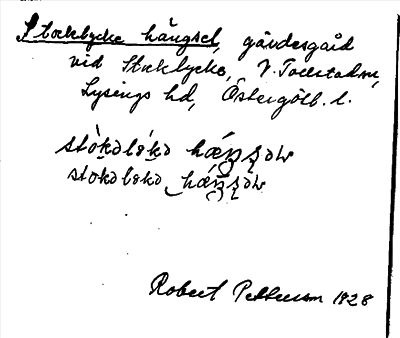 Stocklycke hängsel, gärdesgård
vid Stocklycke, V. Tollstad sn,
Lysings hd, Östergötl. l.
stòkəlýkə hæŋsəl
stokəlykə hæŋsəl
Robert Pettersson 1928